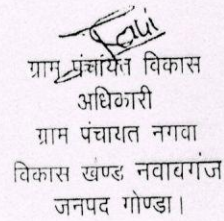 ग्राम पंचायत विकास
अधिकारी
ग्राम पंचायत नगवा
विकास खण्ड नवाबगंज
जनपद गोण्डा।